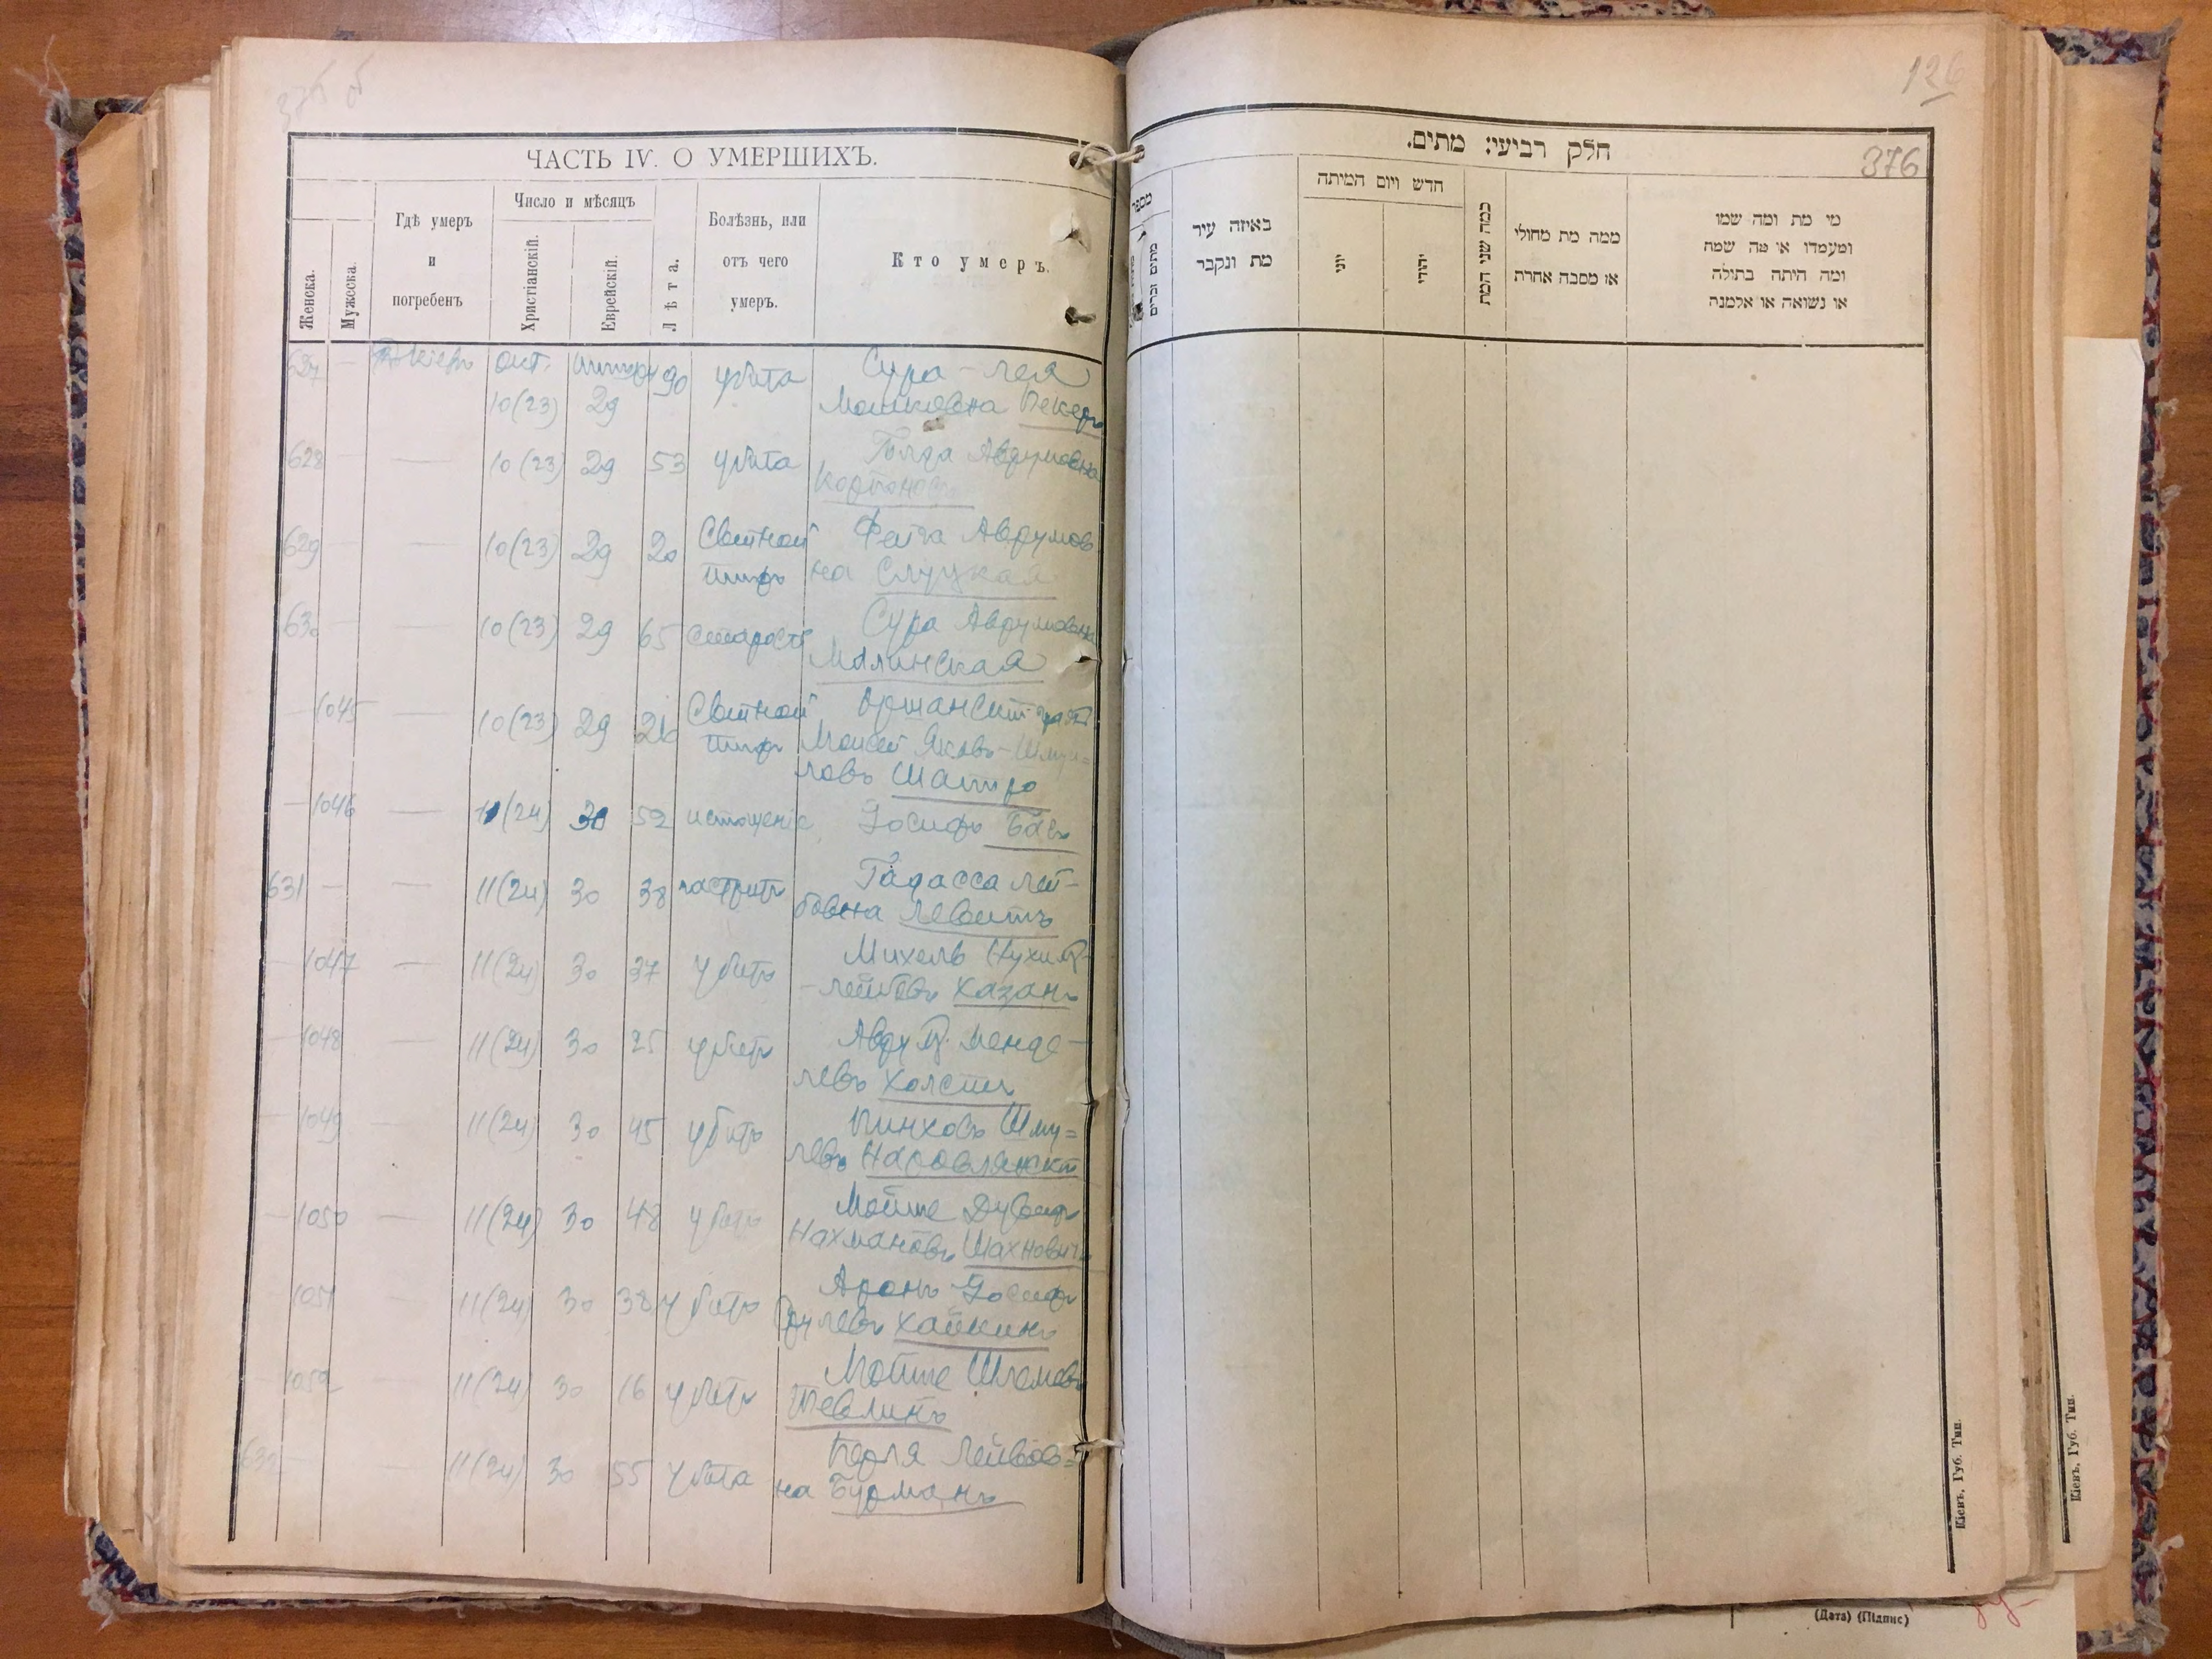 376 б
ЧАСТЬ IV. О УМЕРШИХЪ.
Женска.
Мужеска.
Гдѣ умеръ
и
погребенъ
Число и мѣсяцъ
Христіанскій.
Еврейскій.
Лѣта.
Болѣзнь, или
отъ чего
умеръ.
Кто умеръ.
627 — Кіевъ Окт. 90 убита Сура-Лея
10(23) 29 Мошковна Пекеръ
628 — — 10(23) 29 53 убита Голда Аврумовна
629 — — 10(23) 29 20 Сыпной Фейга Аврумов
тифъ на Слуцкая
630 — — 10(23) 29 65 старость Сура Аврумовна
Малинская
— 1045 — 10(23) 29 26 Сыпной Оршанскій
тифъ Моисей Яковъ-Шму=
левъ Шапиро
— 1046 — 11(24) 30 52 истощеніе Іосифъ Басъ
631 — — 11(24) 30 38 гастритъ Гадасса Лей-
бовна Левитъ
— 1047 — 11(24) 30 37 убитъ Михель Нухим
-Лейбовъ Хазанъ
— 1048 — 11(24) 30 25 убитъ Аврум. Менде-
левъ
— 1049 — 11(24) 30 45 убитъ Пинхосъ Шму=
левъ Наровлянскій
— 1050 — 11(24) 30 48 убитъ Мойше
Нахмановъ Шахновичъ
1051 — 11(24) 30 38 убитъ Аронъ-Іосиф
Срулевъ Хайкинъ
1052 — 11(24) 30 16 убитъ Мойше Шлемовъ
Тевлинъ
632 — — 11(24) 30 55 убита Перля Лейбов=
на Бурманъ
126
חלק רביעי: מתים.
376
מספר
מתים זכרים
באיזה עיר
מת ונקבר
חדש ויום המיתה
יוני
יהודי
כמה שני המת
ממה מת מחולי
או מסבה אחרת
מי מת ומה שמו
ומעמדו או מה שמה
ומה היתה בתולה
או נשואה או אלמנה
Кіевъ, Губ. Тип.
Кіевъ, Губ. Тип.
(Дата) (Підпис)